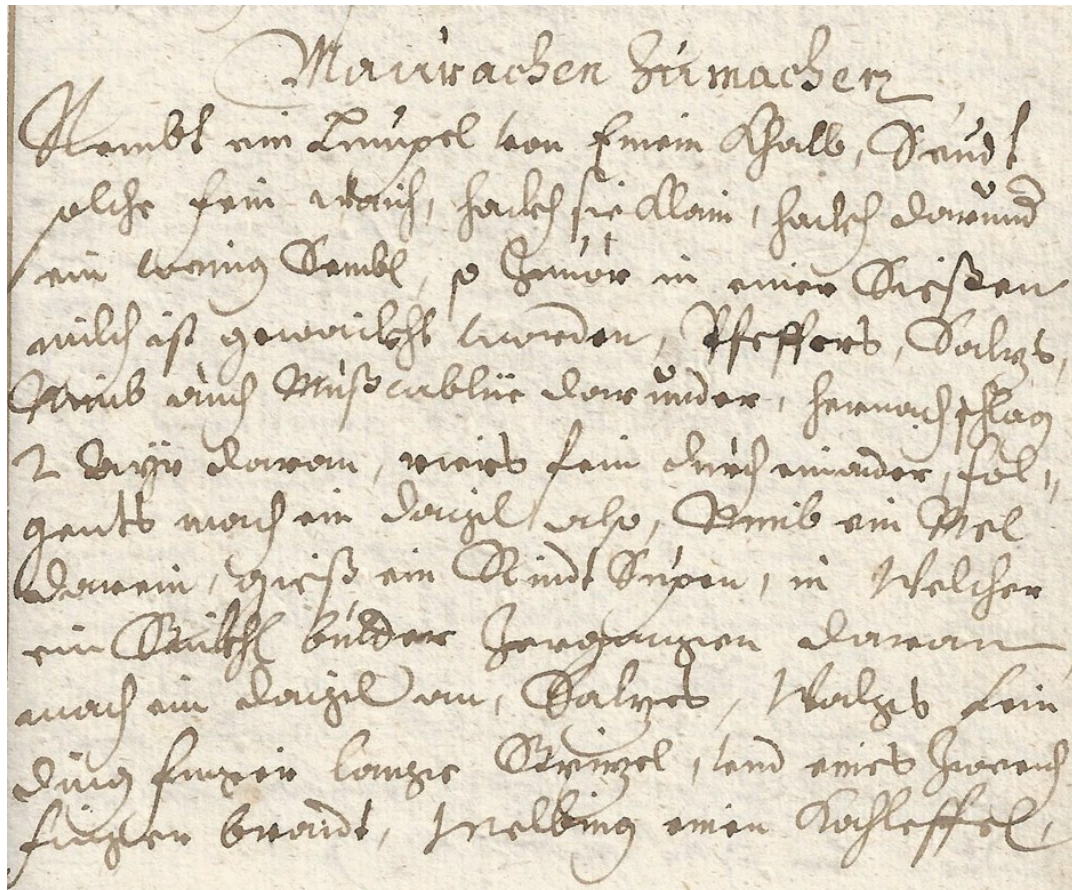 Maurachen Zumachen
Nembt ein Lungel von Einem Khalb, Seudt
solche fein waich, hackh sie klain, hackh darundter
ein wenig Sembl, so Zuuor in einer Siessen
milch ist gewaickht worden, Pfeffers, Salzs,
Nimb auch Mußcablüe darunder, hernach schlag
2 Ayr daran, riers fein durch einander, fol„
gents mach ein daigl also, Nimb ein Mel
darein, gieß ein Rindt Supen, in Welcher
ein Stückhl butter Zergangen daran
mach ein daigl an, Salzes, Walgs fein
finger lange Strizel, und eines Zwerch
finger braidt, einen Kochleffel,